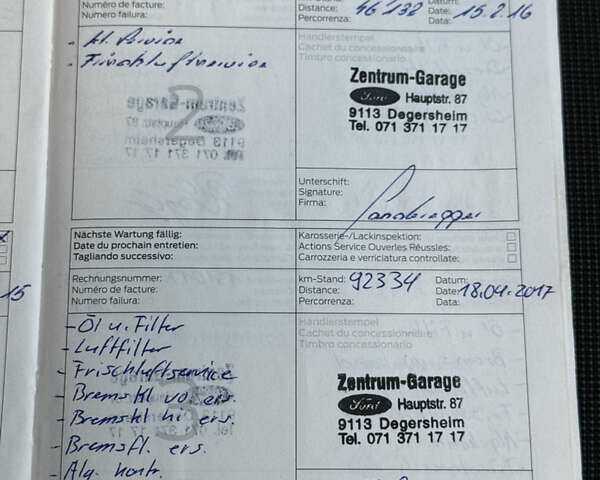 Numéro de facture:
Numero failura:
Distance: 46'132
Percorrenza:
Datum:
Date: 15.2.16
Data:
- kl. Service
- Frischluftservice
Händlerstempel
Cachet du concessionnaire
Timbro concessionario
Zentrum-Garage
Ford Hauptstr. 87
9113 Degersheim
Tel. 071 371 17 17
2
Unterschrift:
Signature:
Firma:
Nächste Wartung fällig:
Date du prochain entretien:
Tagliando successivo:
Karosserie-/Lackinspektion:
Actions Service Ouverles Réussles:
Carrozzeria e verriciatura controllate:
15
Rechnungsnummer:
Numéro de facture:
Numero failura:
km-Stand: 92334
Distance:
Percorrenza:
Datum:
Date: 18.04.2017
Data:
- Öl u. Filter
- Luftfilter
- Frischluftservice
- Bremskl vo ers.
- Bremskl hi ers.
- Bremsfl. ers.
- Alg. kontr.
Händlerstempel
Cachet du concessionnaire
Timbro concessionario
Zentrum-Garage
Ford Hauptstr. 87
9113 Degersheim
Tel. 071 371 17 17